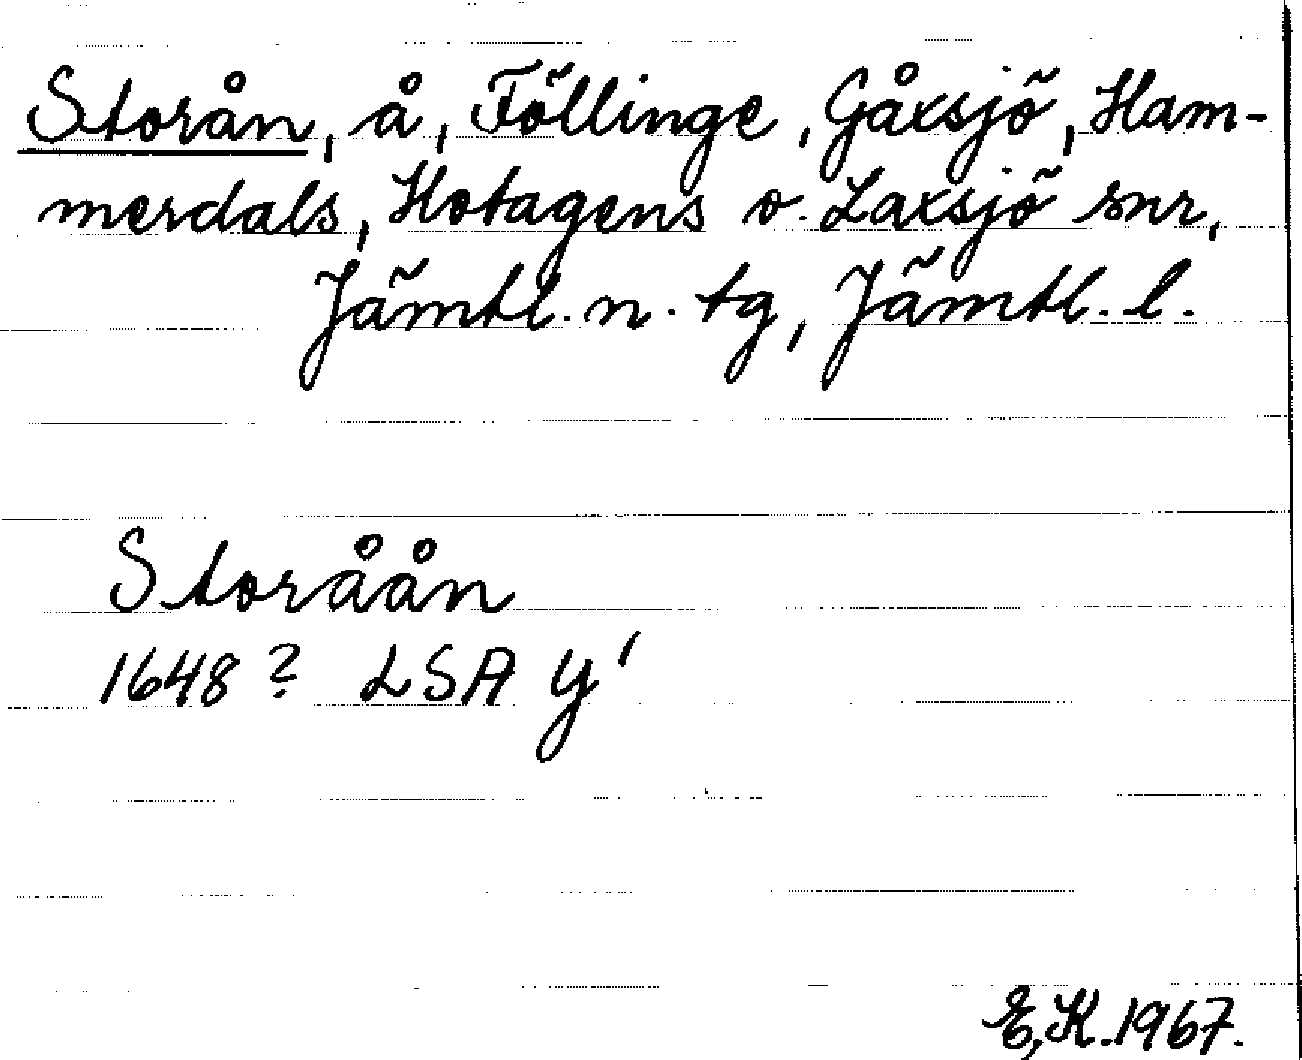 Storån, å, Föllinge, Gåxsjö, Ham-
merdals, Hotagens o. Laxsjö snr,
Jämtl. n. tg, Jämtl. l.
Storåån
1648? LSA Y'
E.K. 1967.